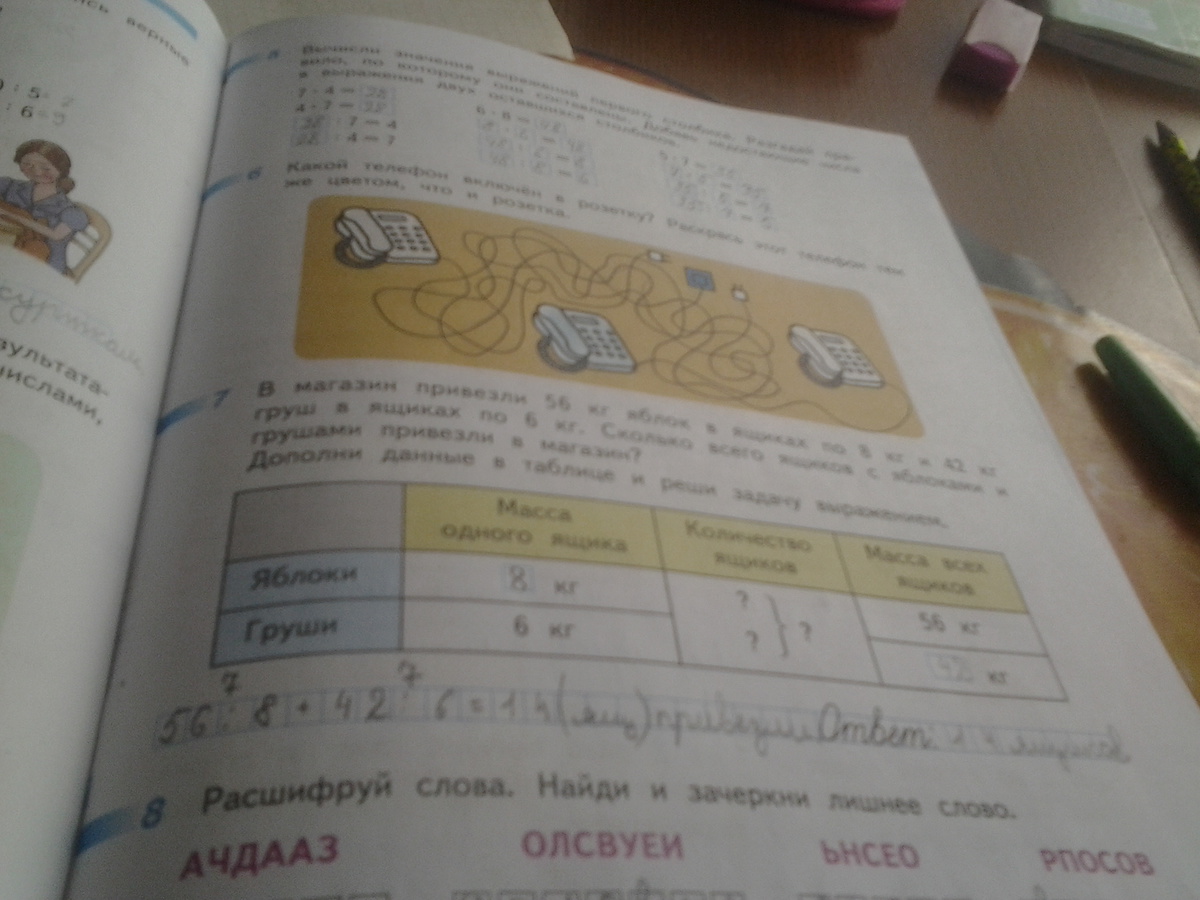 ись верные
: 5= 2
: 6=9
зультата-
числами,
5 Вычисли значения выражений первого столбика. Разгадай пра-
вило, по которому они составлены. Добавь недостающие числа
в выражения двух оставшихся столбиков.
7 · 4 = 28
4 · 7 = 28
28 : 7 = 4
28 : 4 = 7
6 · 8 = 48
6 Какой телефон включён в розетку? Раскрась этот телефон тем
же цветом, что и розетка.
7 В магазин привезли 56 кг яблок в ящиках по 8 кг и 42 кг
груш в ящиках по 6 кг. Сколько всего ящиков с яблоками и
грушами привезли в магазин?
Дополни данные в таблице и реши задачу выражением.
Масса одного ящика
Количество ящиков
Масса всех ящиков
Яблоки 8 кг ? 56 кг
Груши 6 кг ? } ? 42 кг
7 7
56 : 8 + 42 : 6 = 14 (ящ) привезли Ответ: 14 ящиков
8 Расшифруй слова. Найди и зачеркни лишнее слово.
АЧДААЗ ОЛСВУЕИ ЬНСЕО РПОСОВ